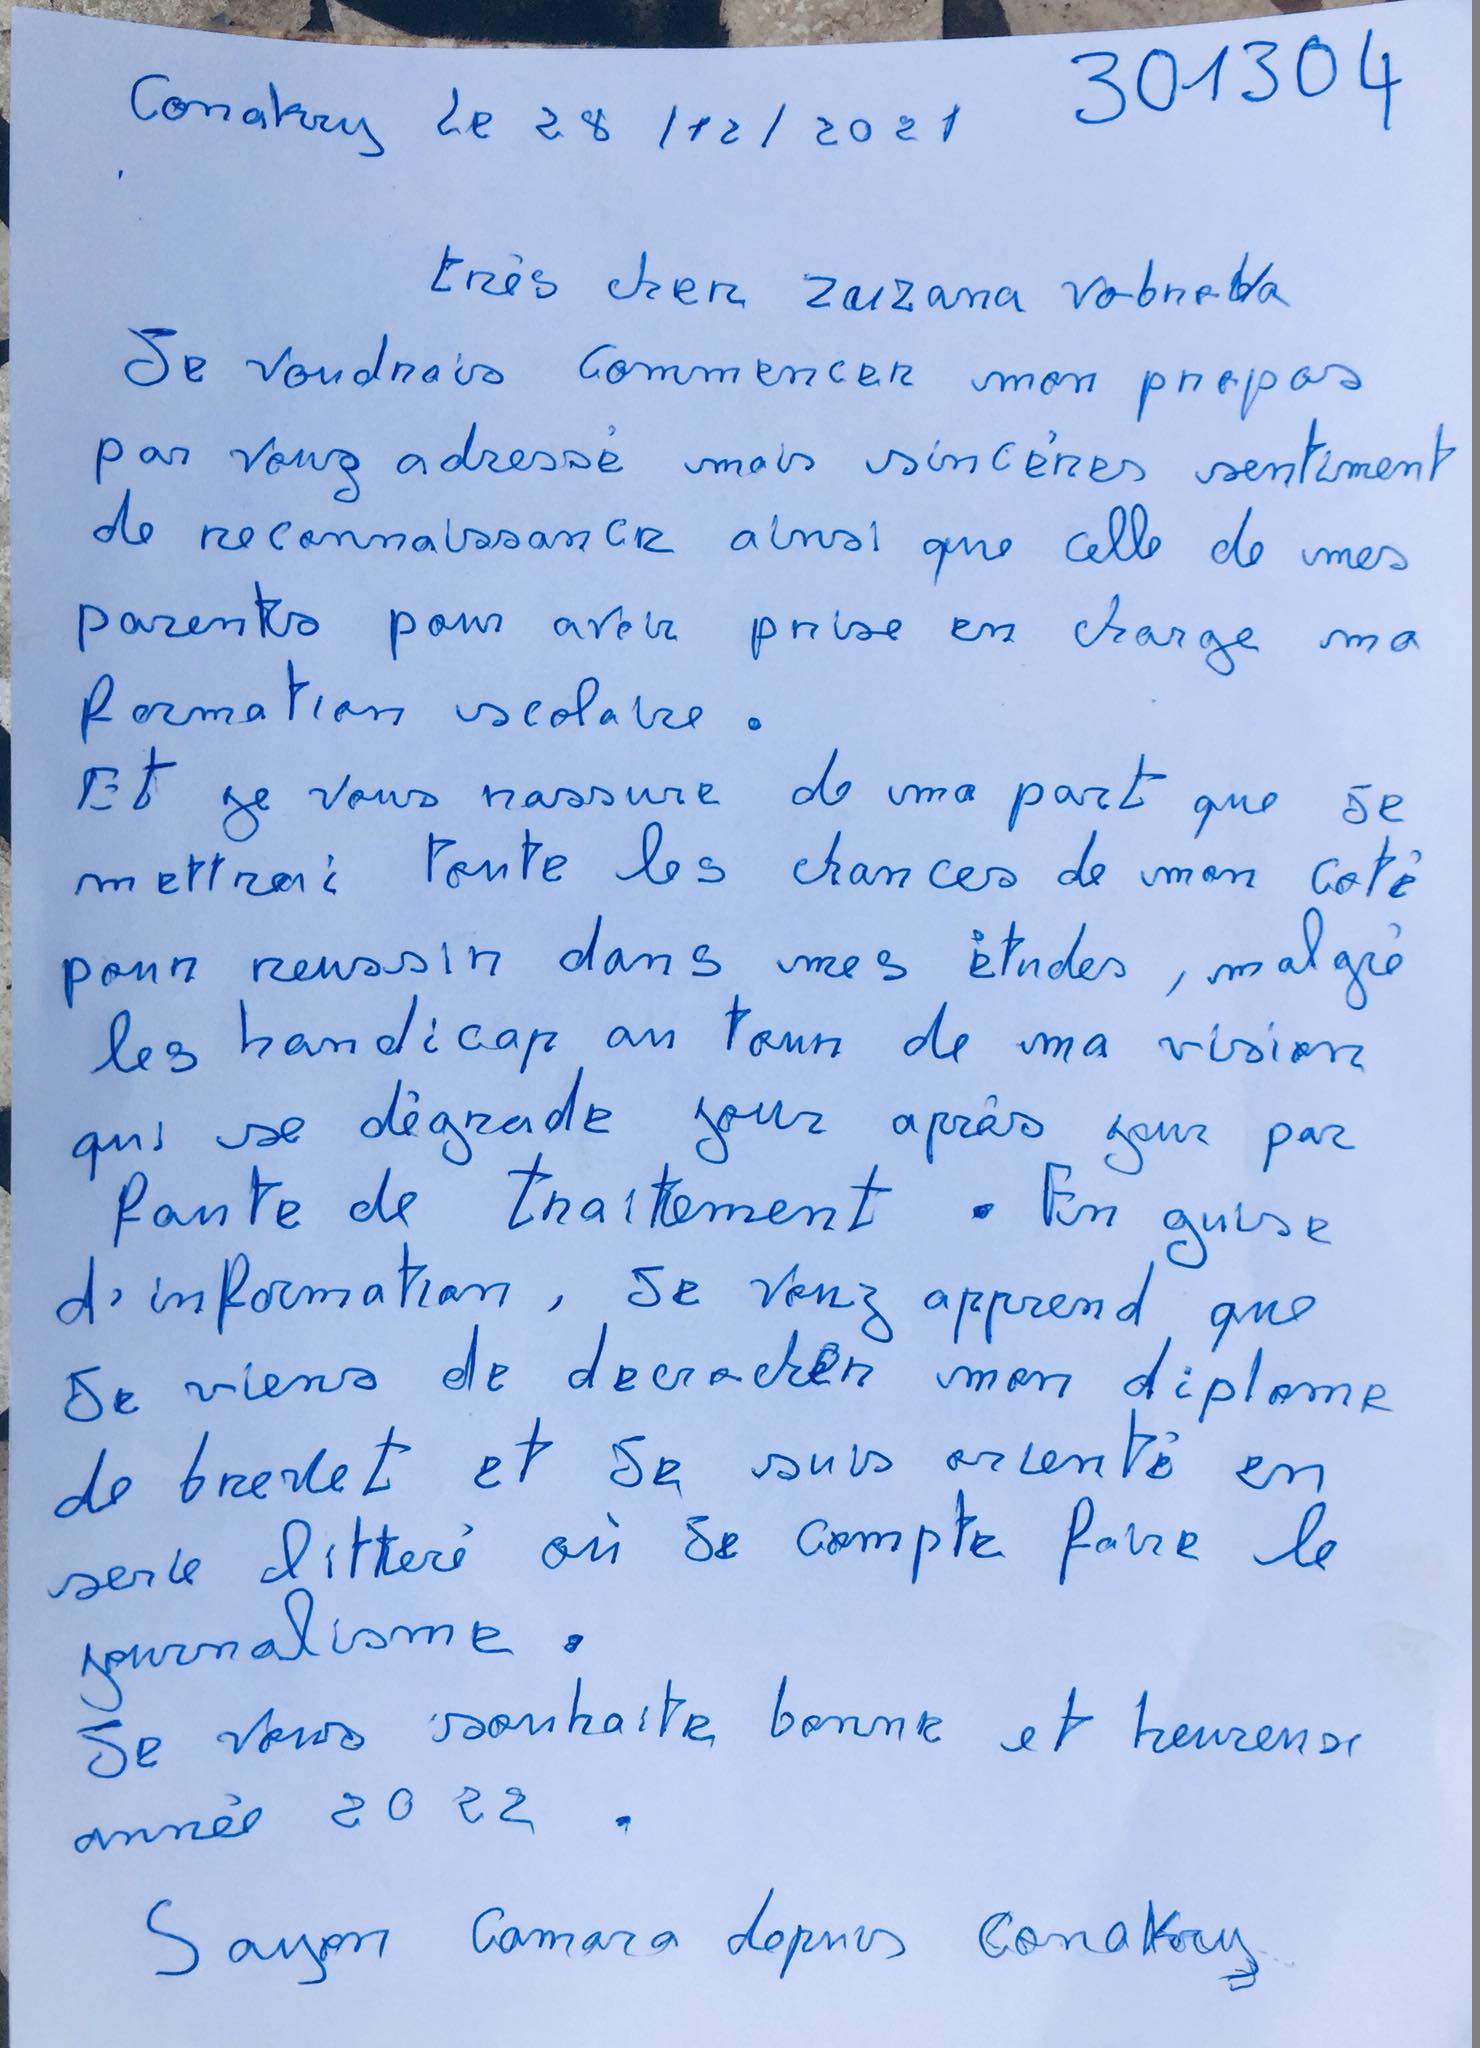 301304
Conakry Le 28/12/2021
très cher zuzana
Je voudrais commencer mon propos
par vouz adressé mais sincères sentiment
de reconnaissance ainsi que celle de mes
parents pour avoir prise en charge ma
formation scolaire.
Et je vous rassure de ma part que je
mettrai toute les chances de mon coté
pour reussir dans mes études, malgré
les handicap au tour de ma vision
qui se dégrade jour après jour par
faute de traitement. En guise
d'information, je vouz apprend que
je viens de decracher mon diplome
de brevet et je suis orienté en
serie litteré où je compte faire le
journalisme.
Je vous souhaite bonne et heureuse
année 2022.
Sayon Camara depuis Conakry